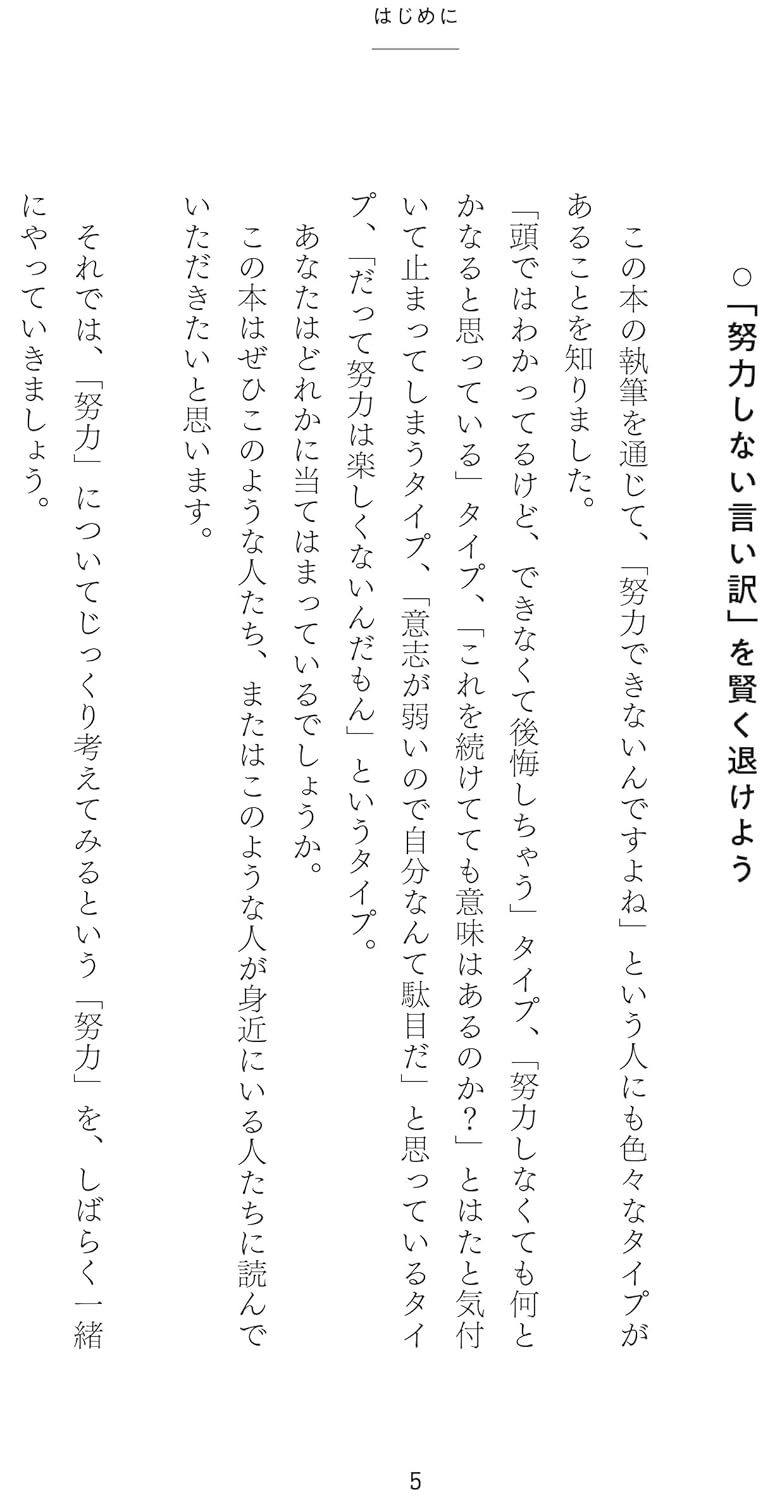 はじめに
○「努力しない言い訳」を賢く退けよう
この本の執筆を通じて、「努力できないんですよね」という人にも色々なタイプが
あることを知りました。
「頭ではわかってるけど、できなくて後悔しちゃう」タイプ、「努力しなくても何と
かなると思っている」タイプ、「これを続けてても意味はあるのか？」とはたと気付
いて止まってしまうタイプ、「意志が弱いので自分なんて駄目だ」と思っているタイ
プ、「だって努力は楽しくないんだもん」というタイプ。
あなたはどれかに当てはまっているでしょうか。
この本はぜひこのような人たち、またはこのような人が身近にいる人たちに読んで
いただきたいと思います。
それでは、「努力」についてじっくり考えてみるという「努力」を、しばらく一緒
にやっていきましょう。
5